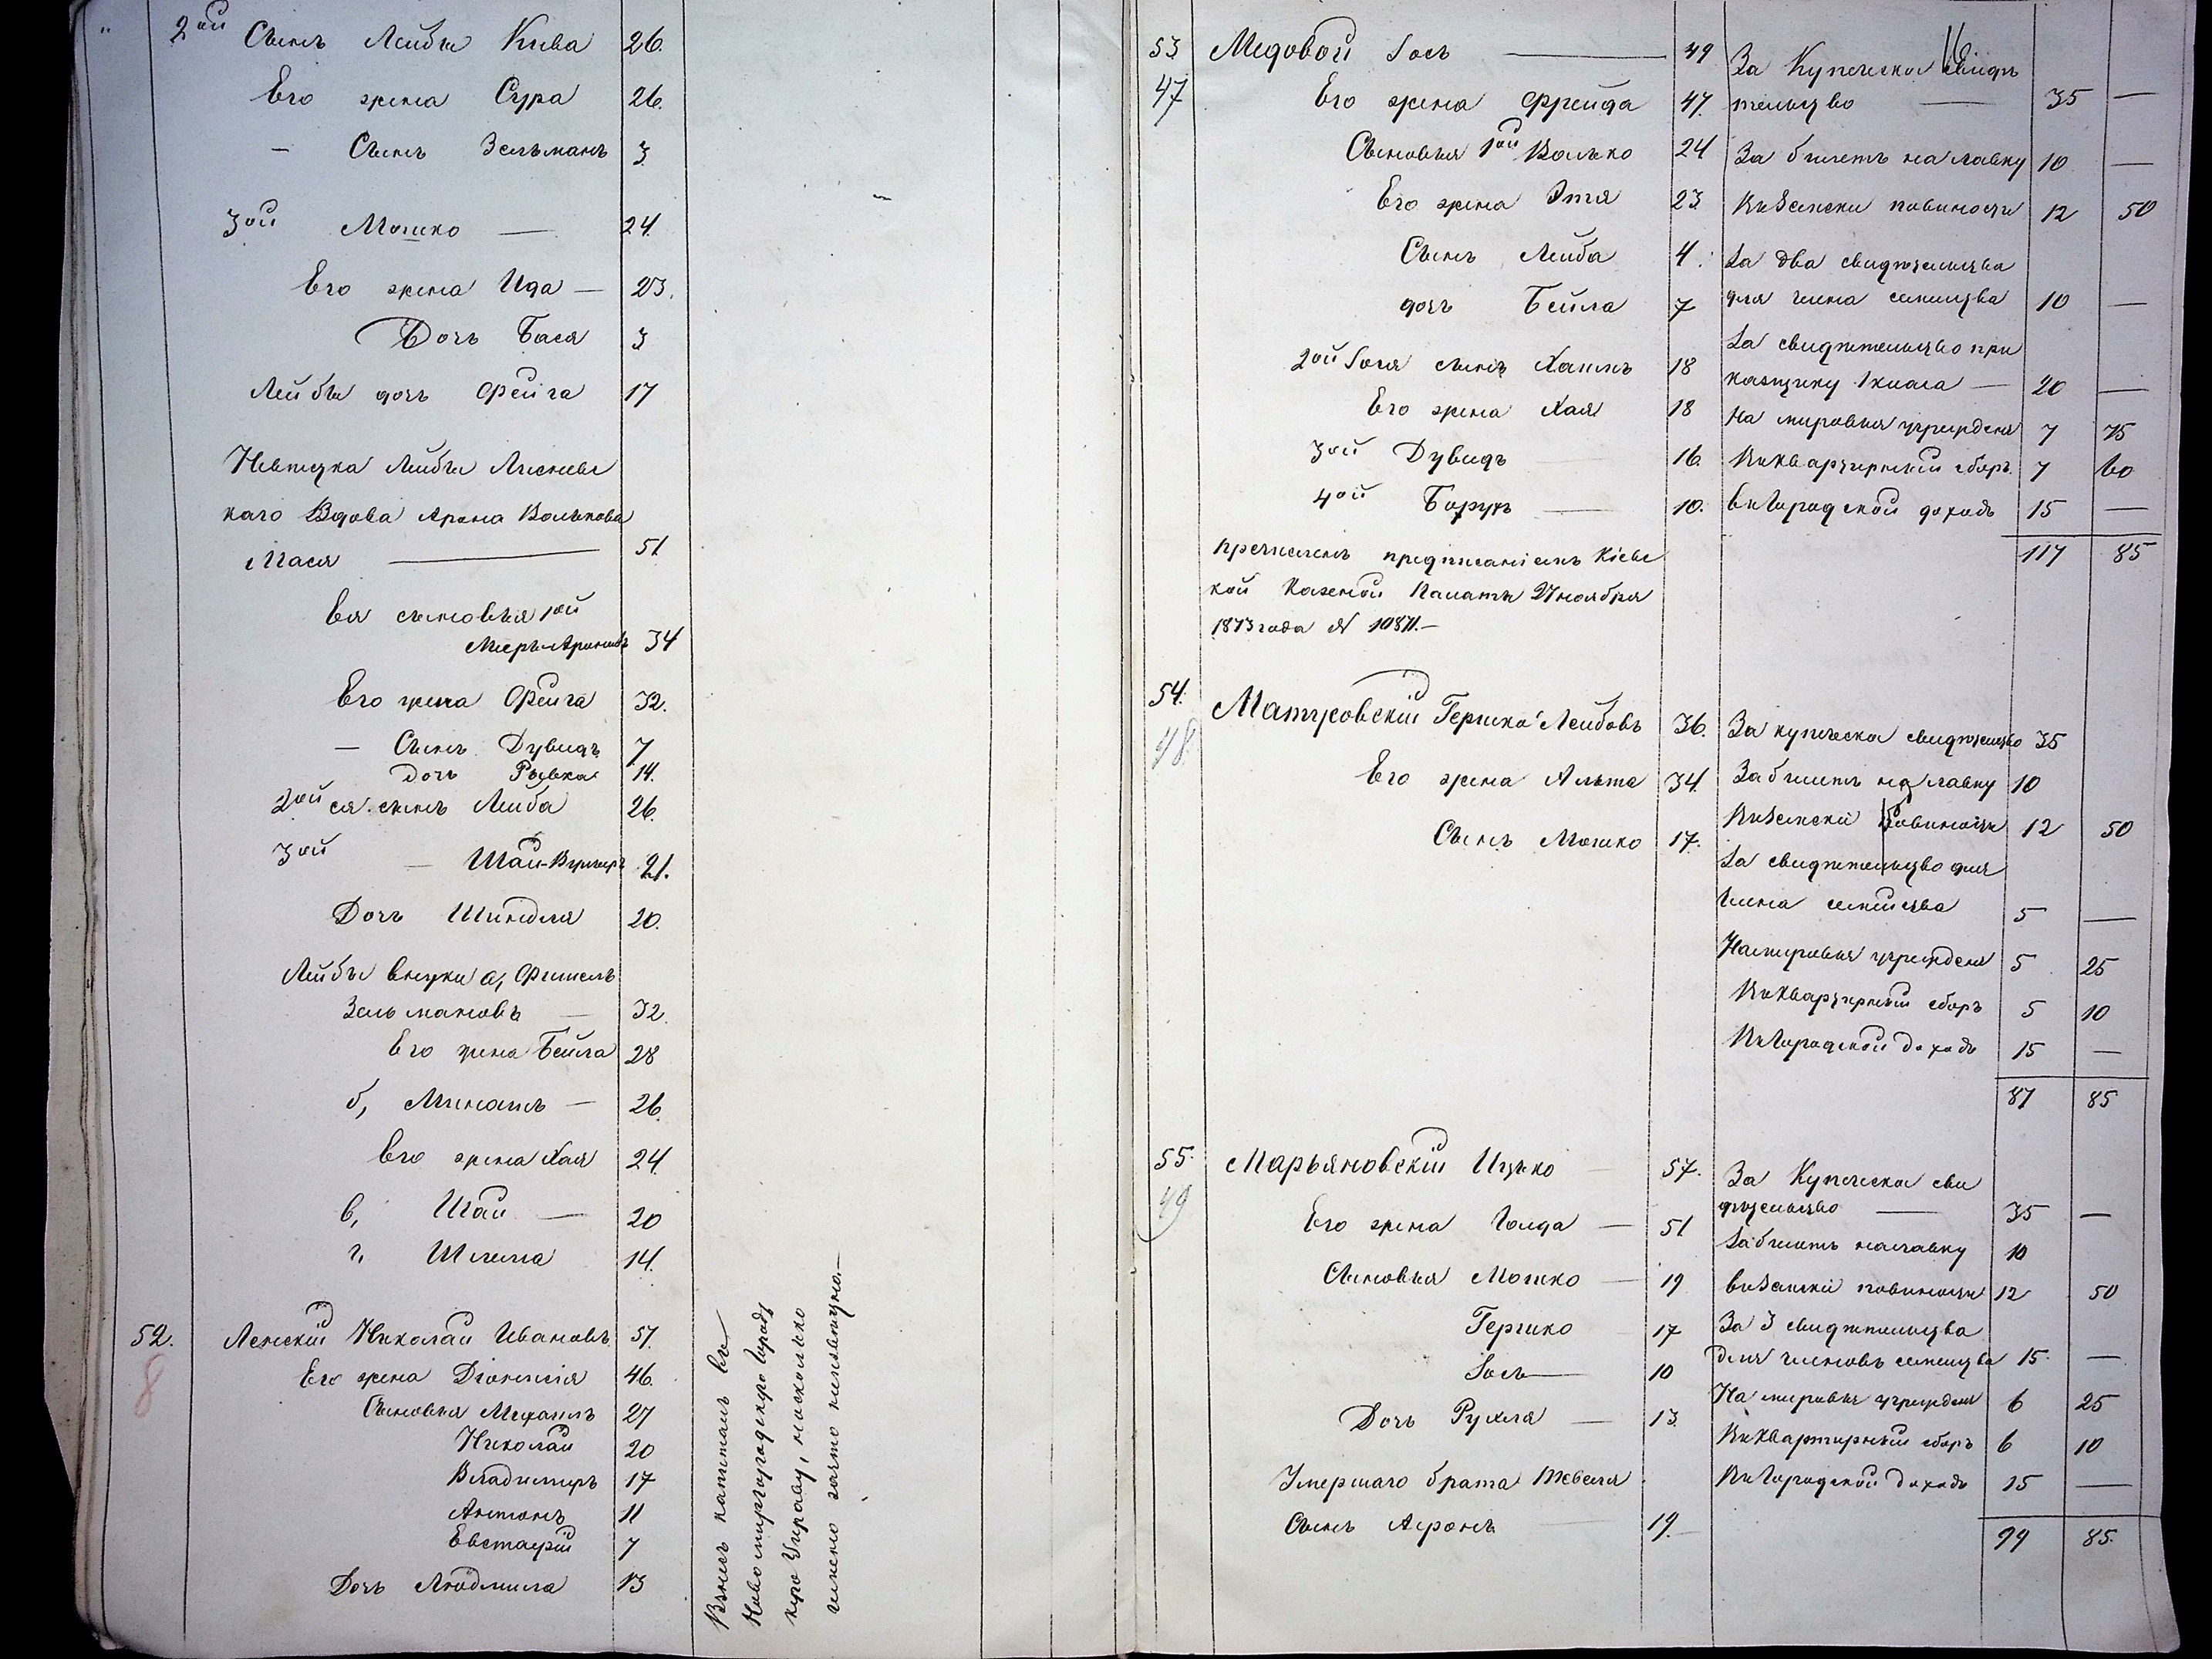 2ой Сынъ Лейбы Кива 26.
Его жена Сура 26.
— Сынъ Зельманъ 3
3ой Мошко — 24.
Его жена Ида — 23.
Дочь Бася 3
Лейбы дочь Фейга 17
Невѣстка Лейбы
каго Вдова Арона Волькова
Мася — 51
Ея сыновья 1ой
Мееръ Ароновъ 34
Его жена Фейга 32.
— Сынъ Дувидъ 7
Дочь Рывка 14.
2ой ея сынъ Лейба 26.
3ой — Шая- 21.
Дочь Шиндля 20.
Лейбы внуки а, Фишель
Зельмановъ — 32.
Его жена Бейла 28
б, — 26.
Его жена Хая 24.
в, Шая — 20
г, Шлема 14.
52. Ленскій Николай Ивановъ 57.
8
Его жена Діонисія 46.
Сыновья Михаилъ 27
Николай 20
Владимиръ 17
Антонъ 11
Евстафій 7
Дочь Людмила 13
Взнесъ капиталъ въ
Новомиргородскую Городс
кую Управу, но сколько
именно за что неизвѣстно.—
16
53 Медовой Іось — 49
47
Его жена Фрейда 47.
Сыновья 1ой Волько 24
Его жена Этя 23
Сынъ Лейба 4.
дочь Бейла 7
2ой Іося сынъ Хаимъ 18
Его жена Хая 18
3ой Дувидъ — 16.
4ой Борухъ — 10.
Пречисленъ предписаніемъ Кіевс
кой Казеной Палаты 27 ноября
1873 года № 10871.—
За Купеческое свидѣ
тельство — 35 —
За билетъ на лавку 10 —
На Земскія повиности 12 50
За два свидѣтельства
для члена семейства 10 —
За свидѣтельство при
кащику 1 класа — 20 —
На мировыя учрежденія 7 75
На Квартирный сборъ 7 60
Въ Городской доходъ 15 —
117 85
54. Матусовскій Гершко Лейбовъ 36.
48
Его жена Альта 34.
Сынъ Мошко 17.
За купеческое свидѣтельство 35
За билетъ на лавку 10
На Земскій повиности 12 50
За свидѣтельство для
члена семейства 5 —
На мировыя учрежденія 5 25
На Квартирный сборъ 5 10
Въ Городской доходъ 15 —
87 85
55. Марьяновскій Ицько 57.
49
Его жена Голда — 51
Сыновья Мошко — 19
Гершко 17
Іось — 10
Дочь Рухля — 13
Умершаго брата
Сынъ Аронъ — 19.
За Купеческое сви
дѣтельство — 35 —
За билетъ на лавку 10
На Земскій повиности 12 50
За 3 свидѣтельства
для членовъ семейства 15 —
На мировыя учрежденія 6 25
На Квартирный сборъ 6 10
Въ Городской доходъ 15 —
99 85.